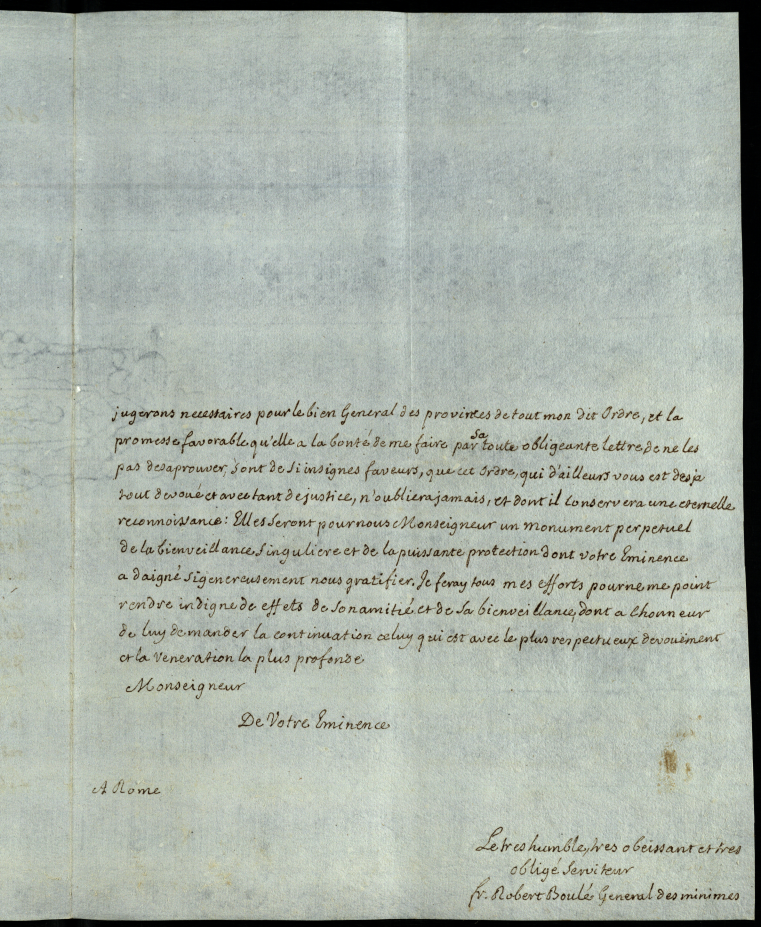 jugerons necessaires pour le bien General des provinces de tout mon dit Ordre, et la
promesse favorable qu'elle a la bonté de me faire par sa toute obligeante lettre, de ne les
pas desaprouver, sont de si insignes faveurs, que cet Ordre, qui d'ailleurs vous est desja
tout devoué et avec tant de justice, n'oubliera jamais, et dont il conservera une eternelle
reconnoissance: Elles seront pour nous Monseigneur un monument perpetuel
de la bienveillance singuliere et de la puissante protection dont votre Eminence
a daigné si genereusement nous gratifier. Je feray tous mes efforts pour ne me point
rendre indigne de effets de son amitié et de sa bienveillance, dont a lhonneur
de luy demander la continuation celuy qui est avec le plus respectueux devouëment
et la veneration la plus profonde
Monseigneur
De Votre Eminence
A Rome
Le tres humble, tres obeissant et tres
obligé serviteur
fr. Robert Boulé General des minimes